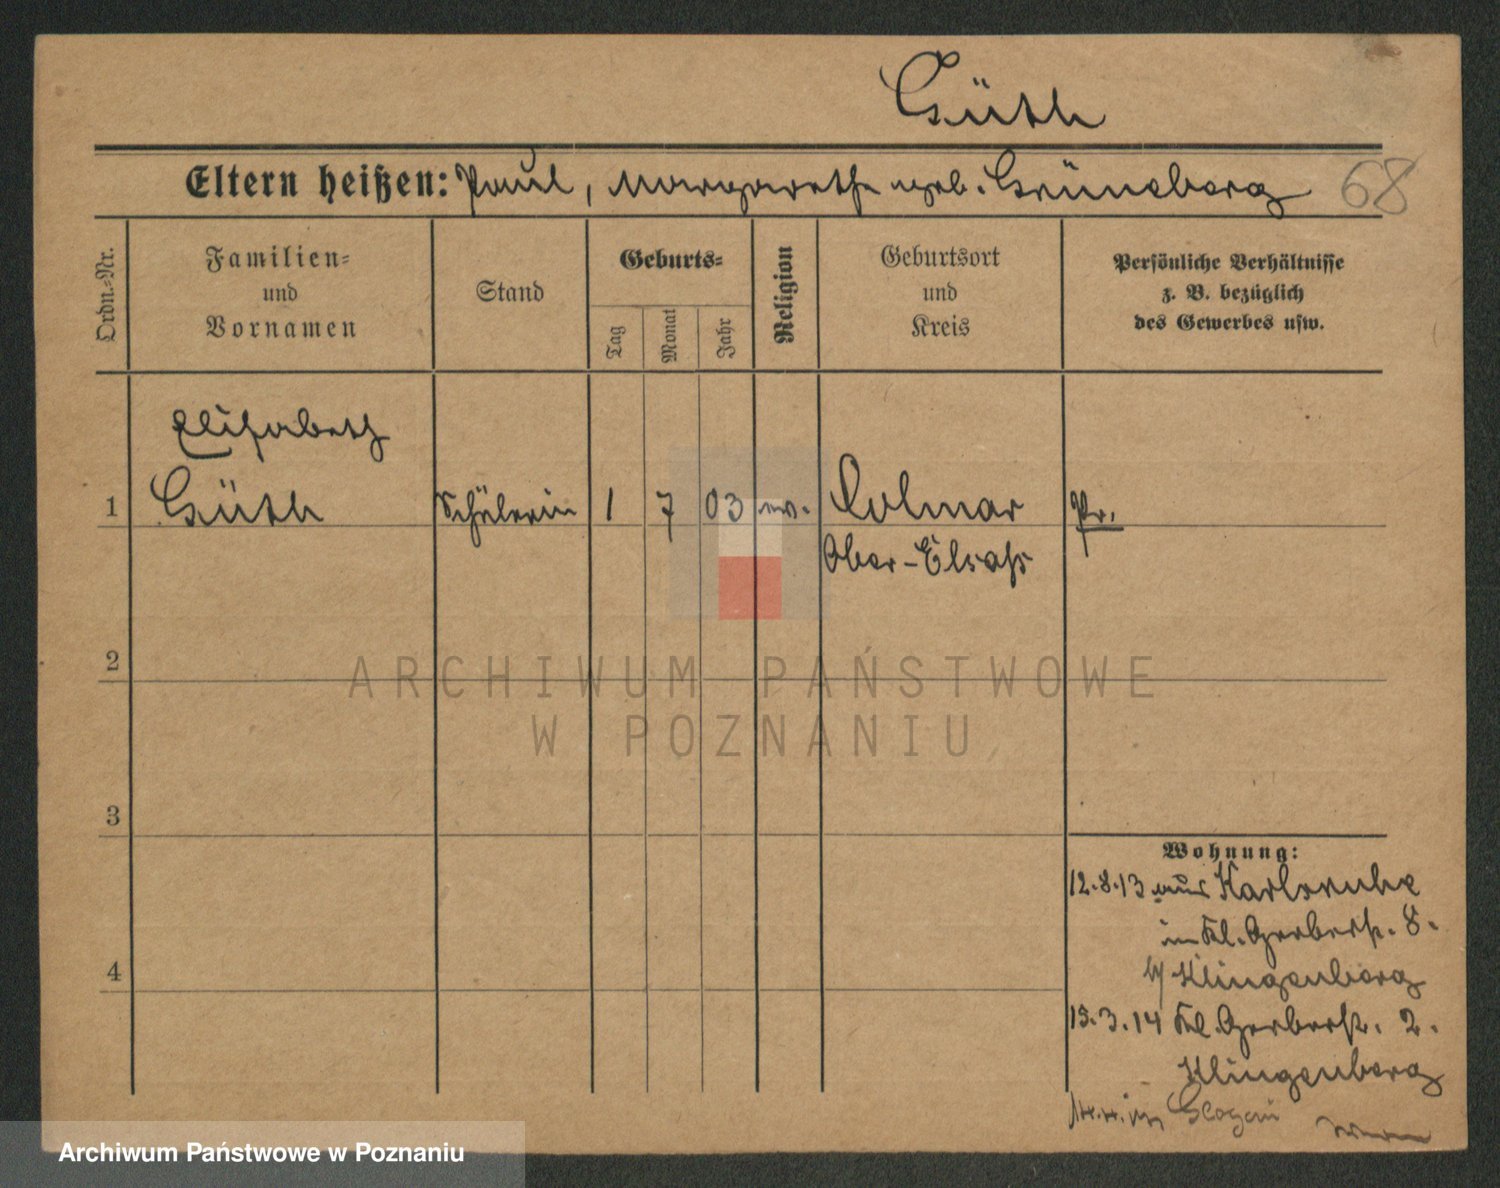 Güth
Eltern heißen: Paul, Margarethe geb. Grüneberg 68
Ordn.-Nr.
Familien-
und
Vornamen
Stand
Geburts-
Tag
Monat
Jahr
Religion
Geburtsort
und
Kreis
Persönliche Verhältnisse
z. B. bezüglich
des Gewerbes usw.
Elisabeth
1 Güth Schülerin 1 7 03 ev. Colmar Pr.
Ober-Elsaß
2
3
4
Wohnung:
12.8.13 aus Karlsruhe
in Kl. Gerberstr. 8.
b/ Klingenberg
15.3.14 Kl. Gerberstr. 2.
Klingenberg
Glogau
ARCHIWUM PAŃSTWOWE
W POZNANIU
Archiwum Państwowe w Poznaniu